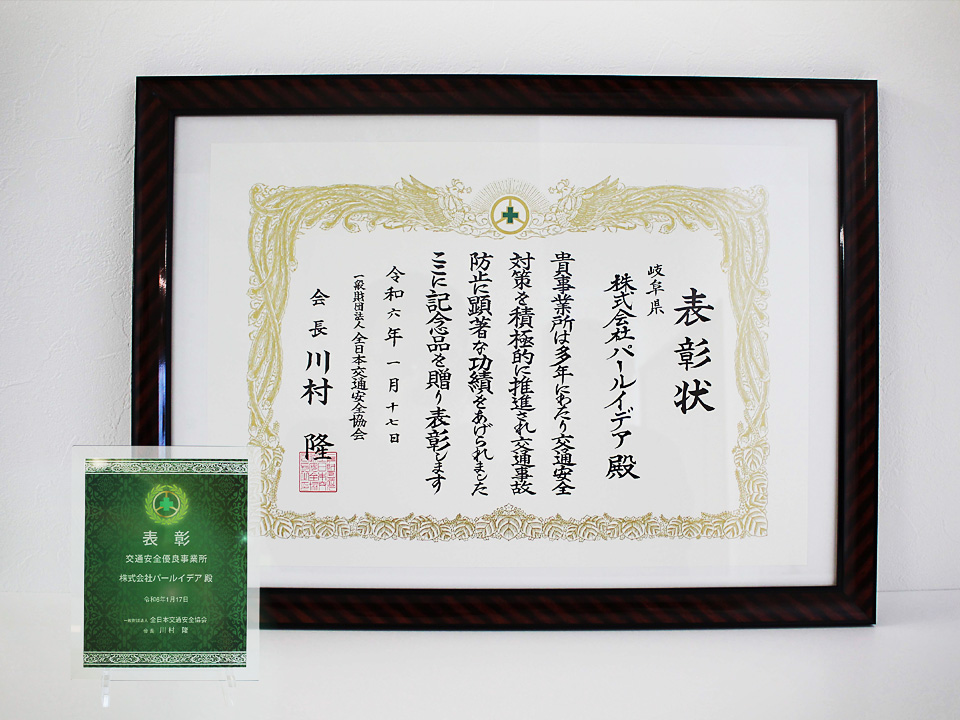 表彰状
岐阜県
株式会社パールイデア殿
貴事業所は多年にわたり交通安全
対策を積極的に推進され交通事故
防止に顕著な功績をあげられました
ここに記念品を贈り表彰します
令和六年一月十七日
一般財団法人 全日本交通安全協会
会長 川村 隆
表彰
交通安全優良事業所
株式会社パールイデア 殿
令和6年1月17日
一般財団法人 全日本交通安全協会
会長 川村 隆